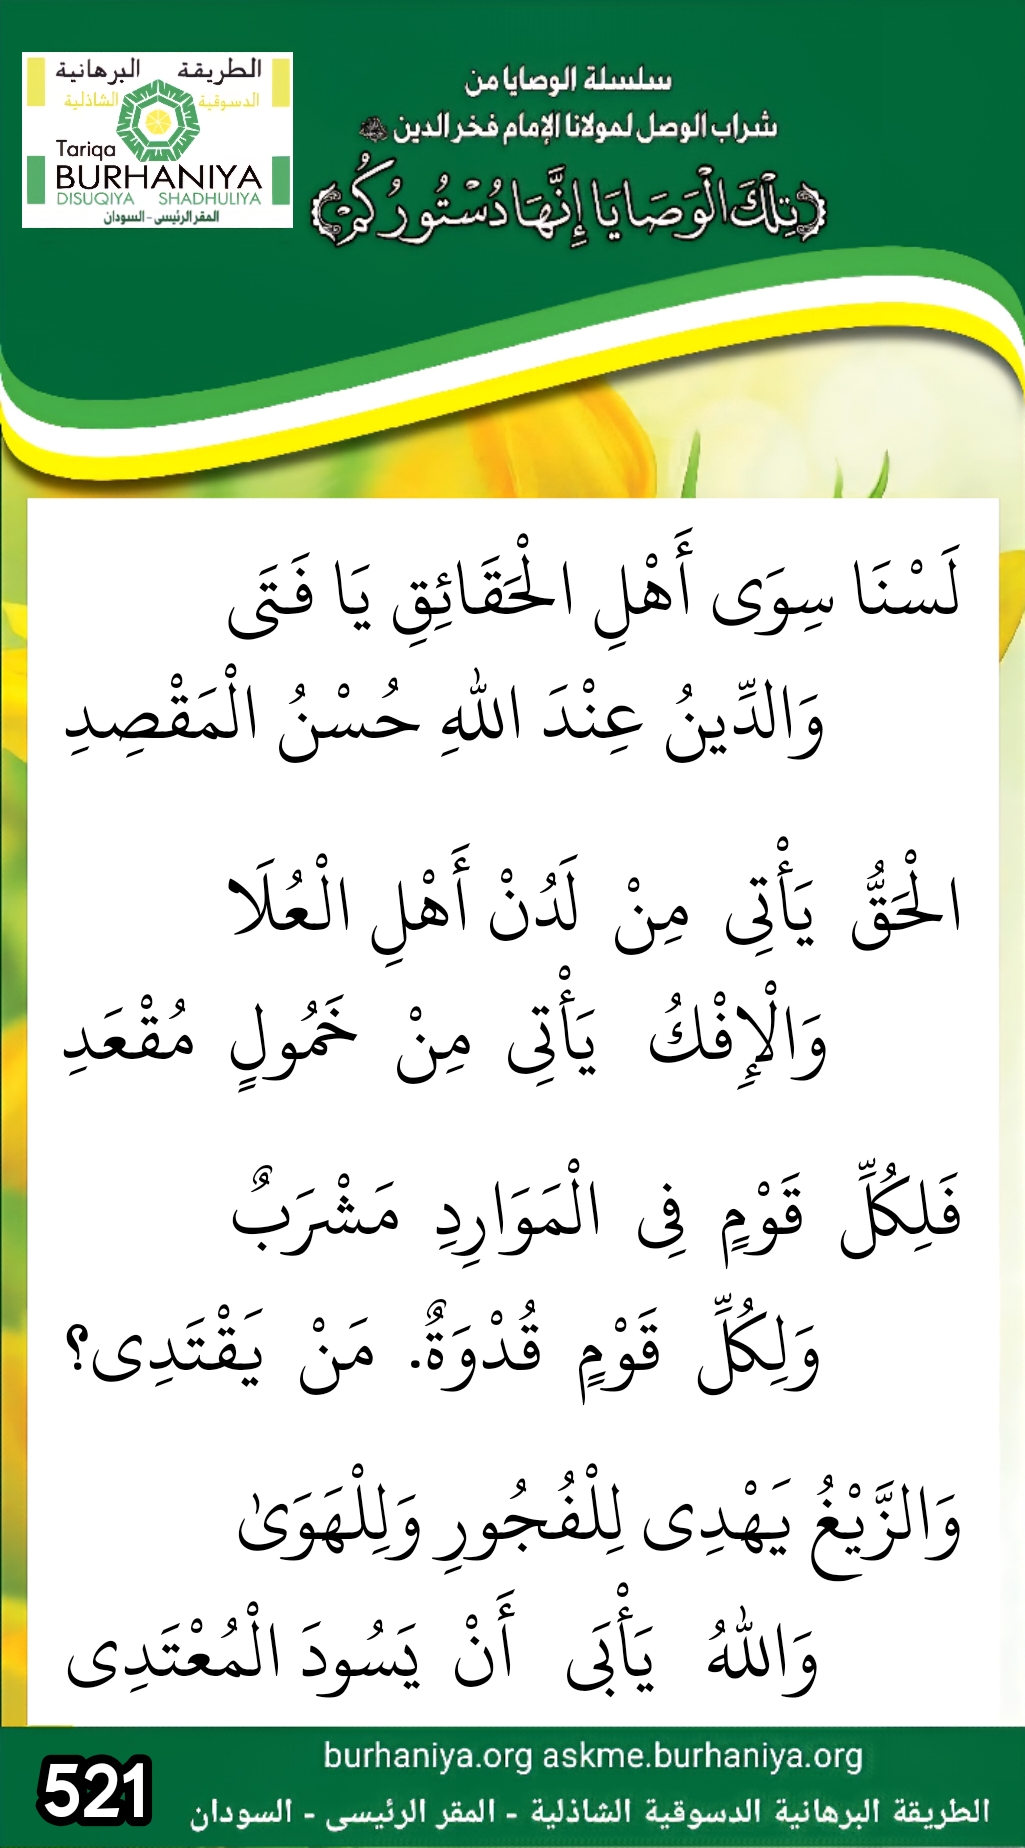 الطريقة البرهانية
الدسوقية الشاذلية
Tariqa
BURHANIYA
DISUQIYA SHADHULIYA
المقر الرئيسى - السودان
سلسلة الوصايا من
شراب الوصل لمولانا الإمام فخر الدين
تِلْكَ الْوَصَايَا إِنَّهَا دُسْتُورُكُمْ
لَسْنَا سِوَى أَهْلِ الْحَقَائِقِ يَا فَتَى
وَالدِّينُ عِنْدَ اللهِ حُسْنُ الْمَقْصِدِ
الْحَقُّ يَأْتِى مِنْ لَدُنْ أَهْلِ الْعُلَا
وَالْإِفْكُ يَأْتِى مِنْ خَمُولٍ مُقْعَدِ
فَلِكُلِّ قَوْمٍ فِى الْمَوَارِدِ مَشْرَبٌ
وَلِكُلِّ قَوْمٍ قُدْوَةٌ. مَنْ يَقْتَدِى؟
وَالزَّيْغُ يَهْدِى لِلْفُجُورِ وَلِلْهَوَىٰ
وَاللهُ يَأْبَى أَنْ يَسُودَ الْمُعْتَدِى
521
burhaniya.org askme.burhaniya.org
الطريقة البرهانية الدسوقية الشاذلية - المقر الرئيسى - السودان